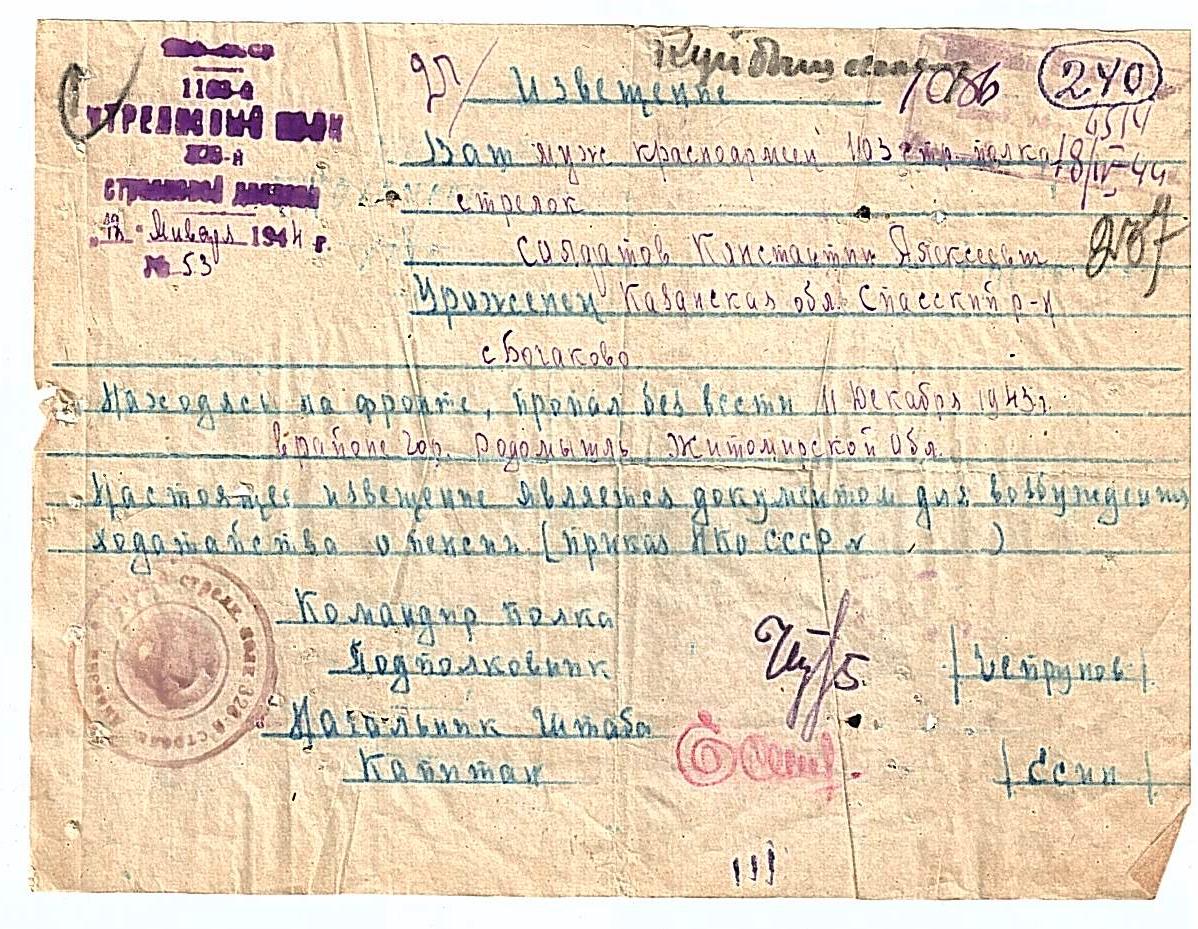 Куйбышевский
1103-й
СТРЕЛКОВЫЙ ПОЛК
328-й
СТРЕЛКОВОЙ ДИВИЗИИ
Января 1944 г.
№ 53
Извещение
1086
240
45/4
18/IV-44
207
Ваш муж красноармеец 1103 стр. полка
стрелок
Салдатов Канстантин Алексеевич
Уроженец Казанская обл. Спасский р-н
с Богаково
Находясь на фронте, пропал без вести 11 Декабря 1943 г.
в районе гор. Родомышль Житомирской обл.
Настоящее извещение является документом для возбуждения
ходатайства о пенсии (приказ НКО СССР № )
Командир полка
Подполковник
/ Четрунов /
Начальник Штаба
Капитан
Есин
/ Есин /